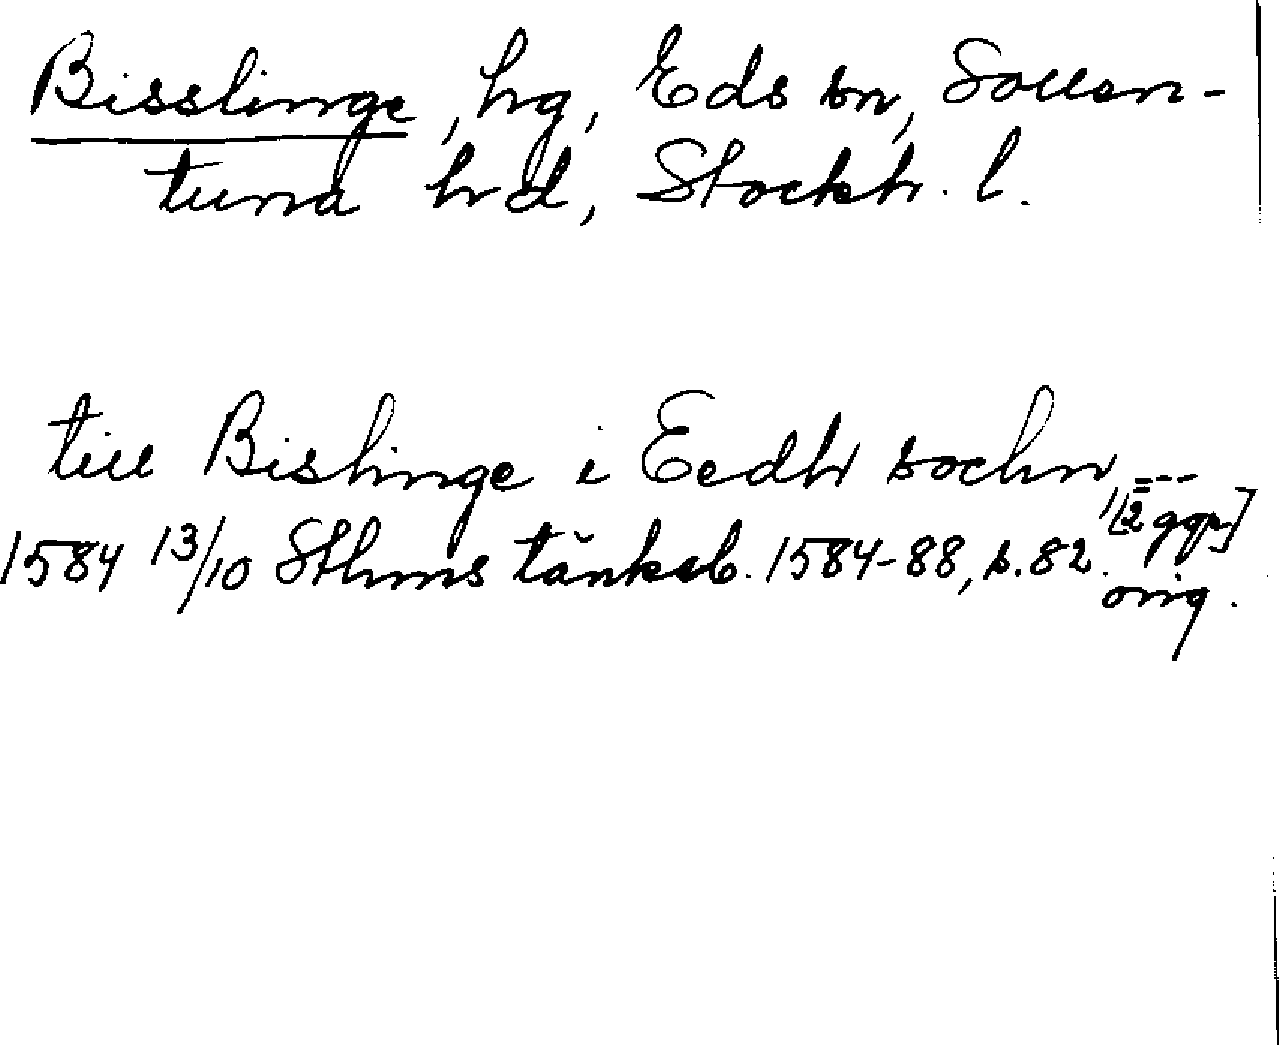 Bisslinge, hg, Eds sn, Sollen-
tuna hd, Stockh. l.
till Bislinge i Eedh sochn ---
1584 13/10 Sthms tänkeb. 1584-88, s. 82. [2 ggr]
orig.